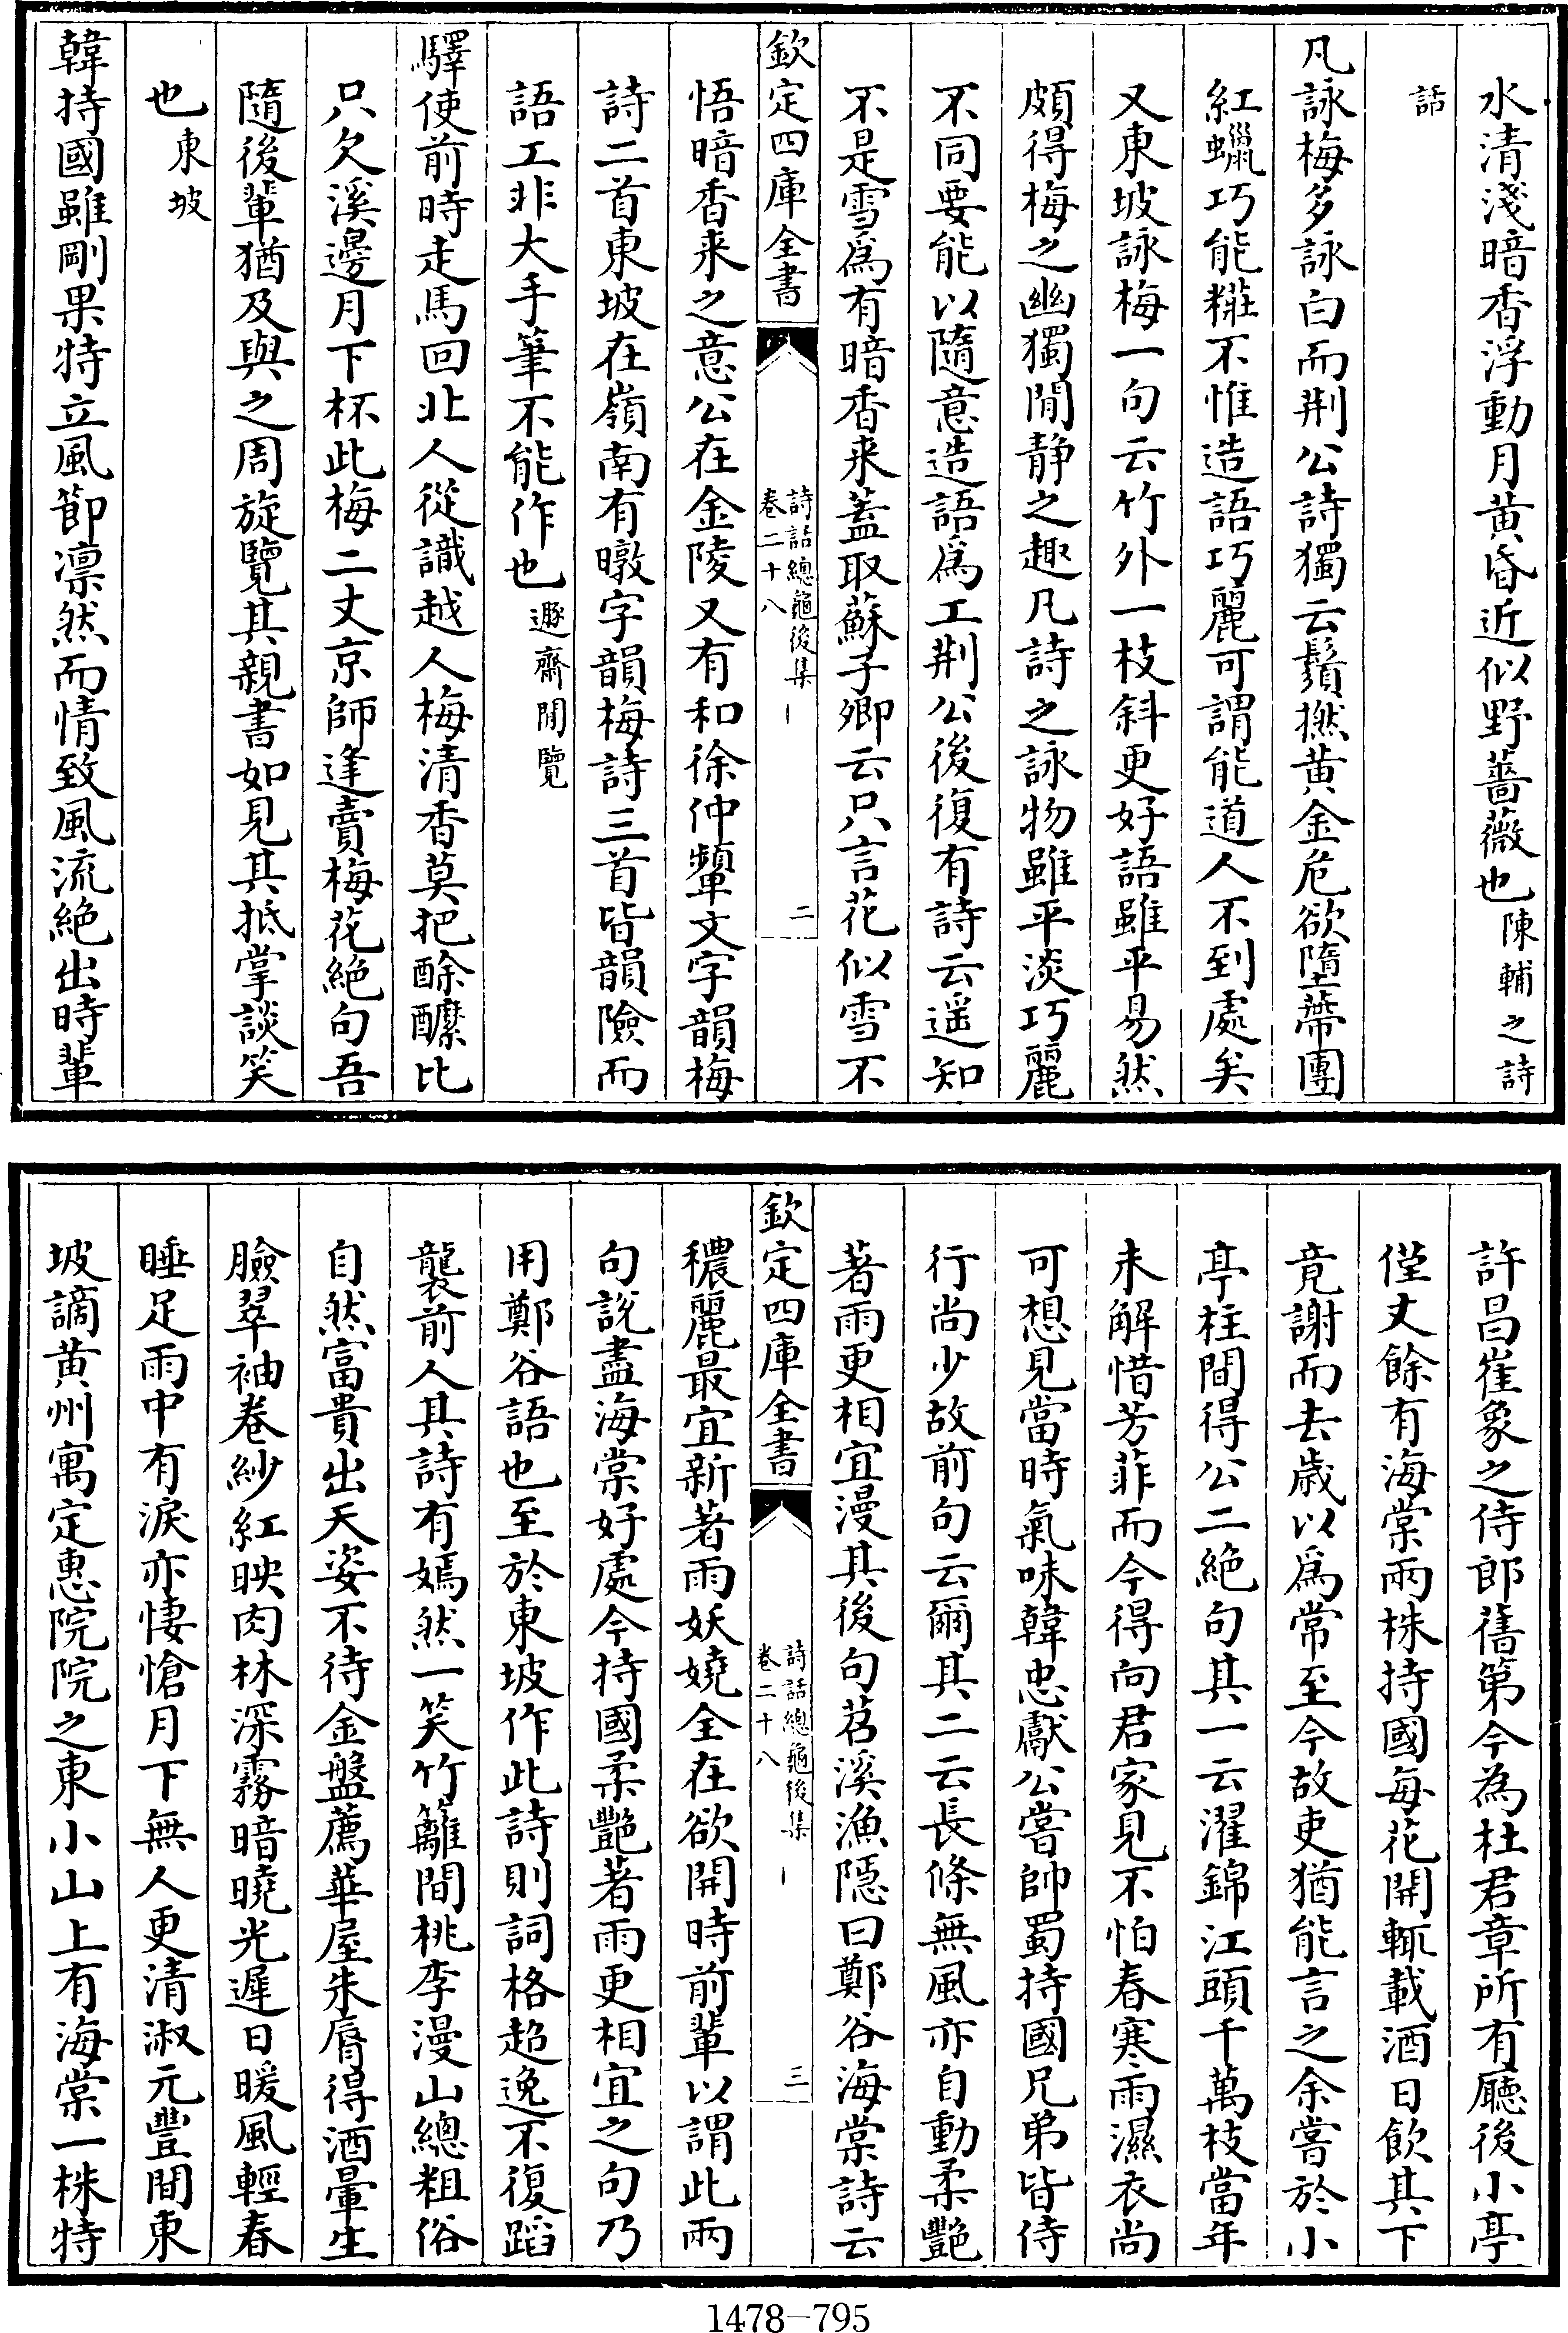 水清淺暗香浮動月黄昏近似野薔薇也陳輔之詩
話
凡詠梅多詠白而荆公詩獨云鬚撚黄金危欲墮蔕團
紅蠟巧能糚不惟造語巧麗可謂能道人不到處矣
又東坡詠梅一句云竹外一枝斜更好語雖平易然
頗得梅之幽獨閒静之趣凡詩之詠物雖平淡巧麗
不同要能以隨意造語爲工荆公後復有詩云遥知
不是雪爲有暗香来蓋取蘇子卿云只言花似雪不
欽定四庫全書
詩話總龜後集
卷二十八
二
悟暗香来之意公在金陵又有和徐仲顰文字韻梅
詩二首東坡在嶺南有暾字韻梅詩三首皆韻險而
語工非大手筆不能作也遯齋閒覽
驛使前時走馬回北人從識越人梅清香莫把酴醿比
只欠溪邊月下杯此梅二丈京師逢賣梅花絶句吾
隨後輩猶及與之周旋覽其親書如見其抵掌談笑
也東坡
韓持國雖剛果特立風節凛然而情致風流絶出時輩
許昌崔象之侍郎舊第今為杜君章所有廳後小亭
僅丈餘有海棠兩株持國每花開輒載酒日飲其下
竟謝而去歲以爲常至今故吏猶能言之余嘗於小
亭柱間得公二絶句其一云濯錦江頭千萬枝當年
未解惜芳菲而今得向君家見不怕春寒雨濕衣尚
可想見當時氣味韓忠獻公嘗帥蜀持國兄弟皆侍
行尚少故前句云爾其二云長條無風亦自動柔艷
著雨更相宜漫其後句苕溪漁隱曰鄭谷海棠詩云
欽定四庫全書
詩話總龜後集
卷二十八
三
穠麗最宜新著雨妖嬈全在欲開時前輩以謂此兩
句說盡海棠好處今持國柔艷著雨更相宜之句乃
用鄭谷語也至於東坡作此詩則詞格超逸不復蹈
襲前人其詩有嫣然一笑竹籬間桃李漫山總粗俗
自然富貴出天姿不待金盤薦華屋朱脣得酒暈生
臉翠袖卷紗紅映肉林深霧暗曉光遲日暖風輕春
睡足雨中有淚亦悽愴月下無人更清淑元豐間東
坡謫黄州寓定惠院院之東小山上有海棠一株特
1478-795